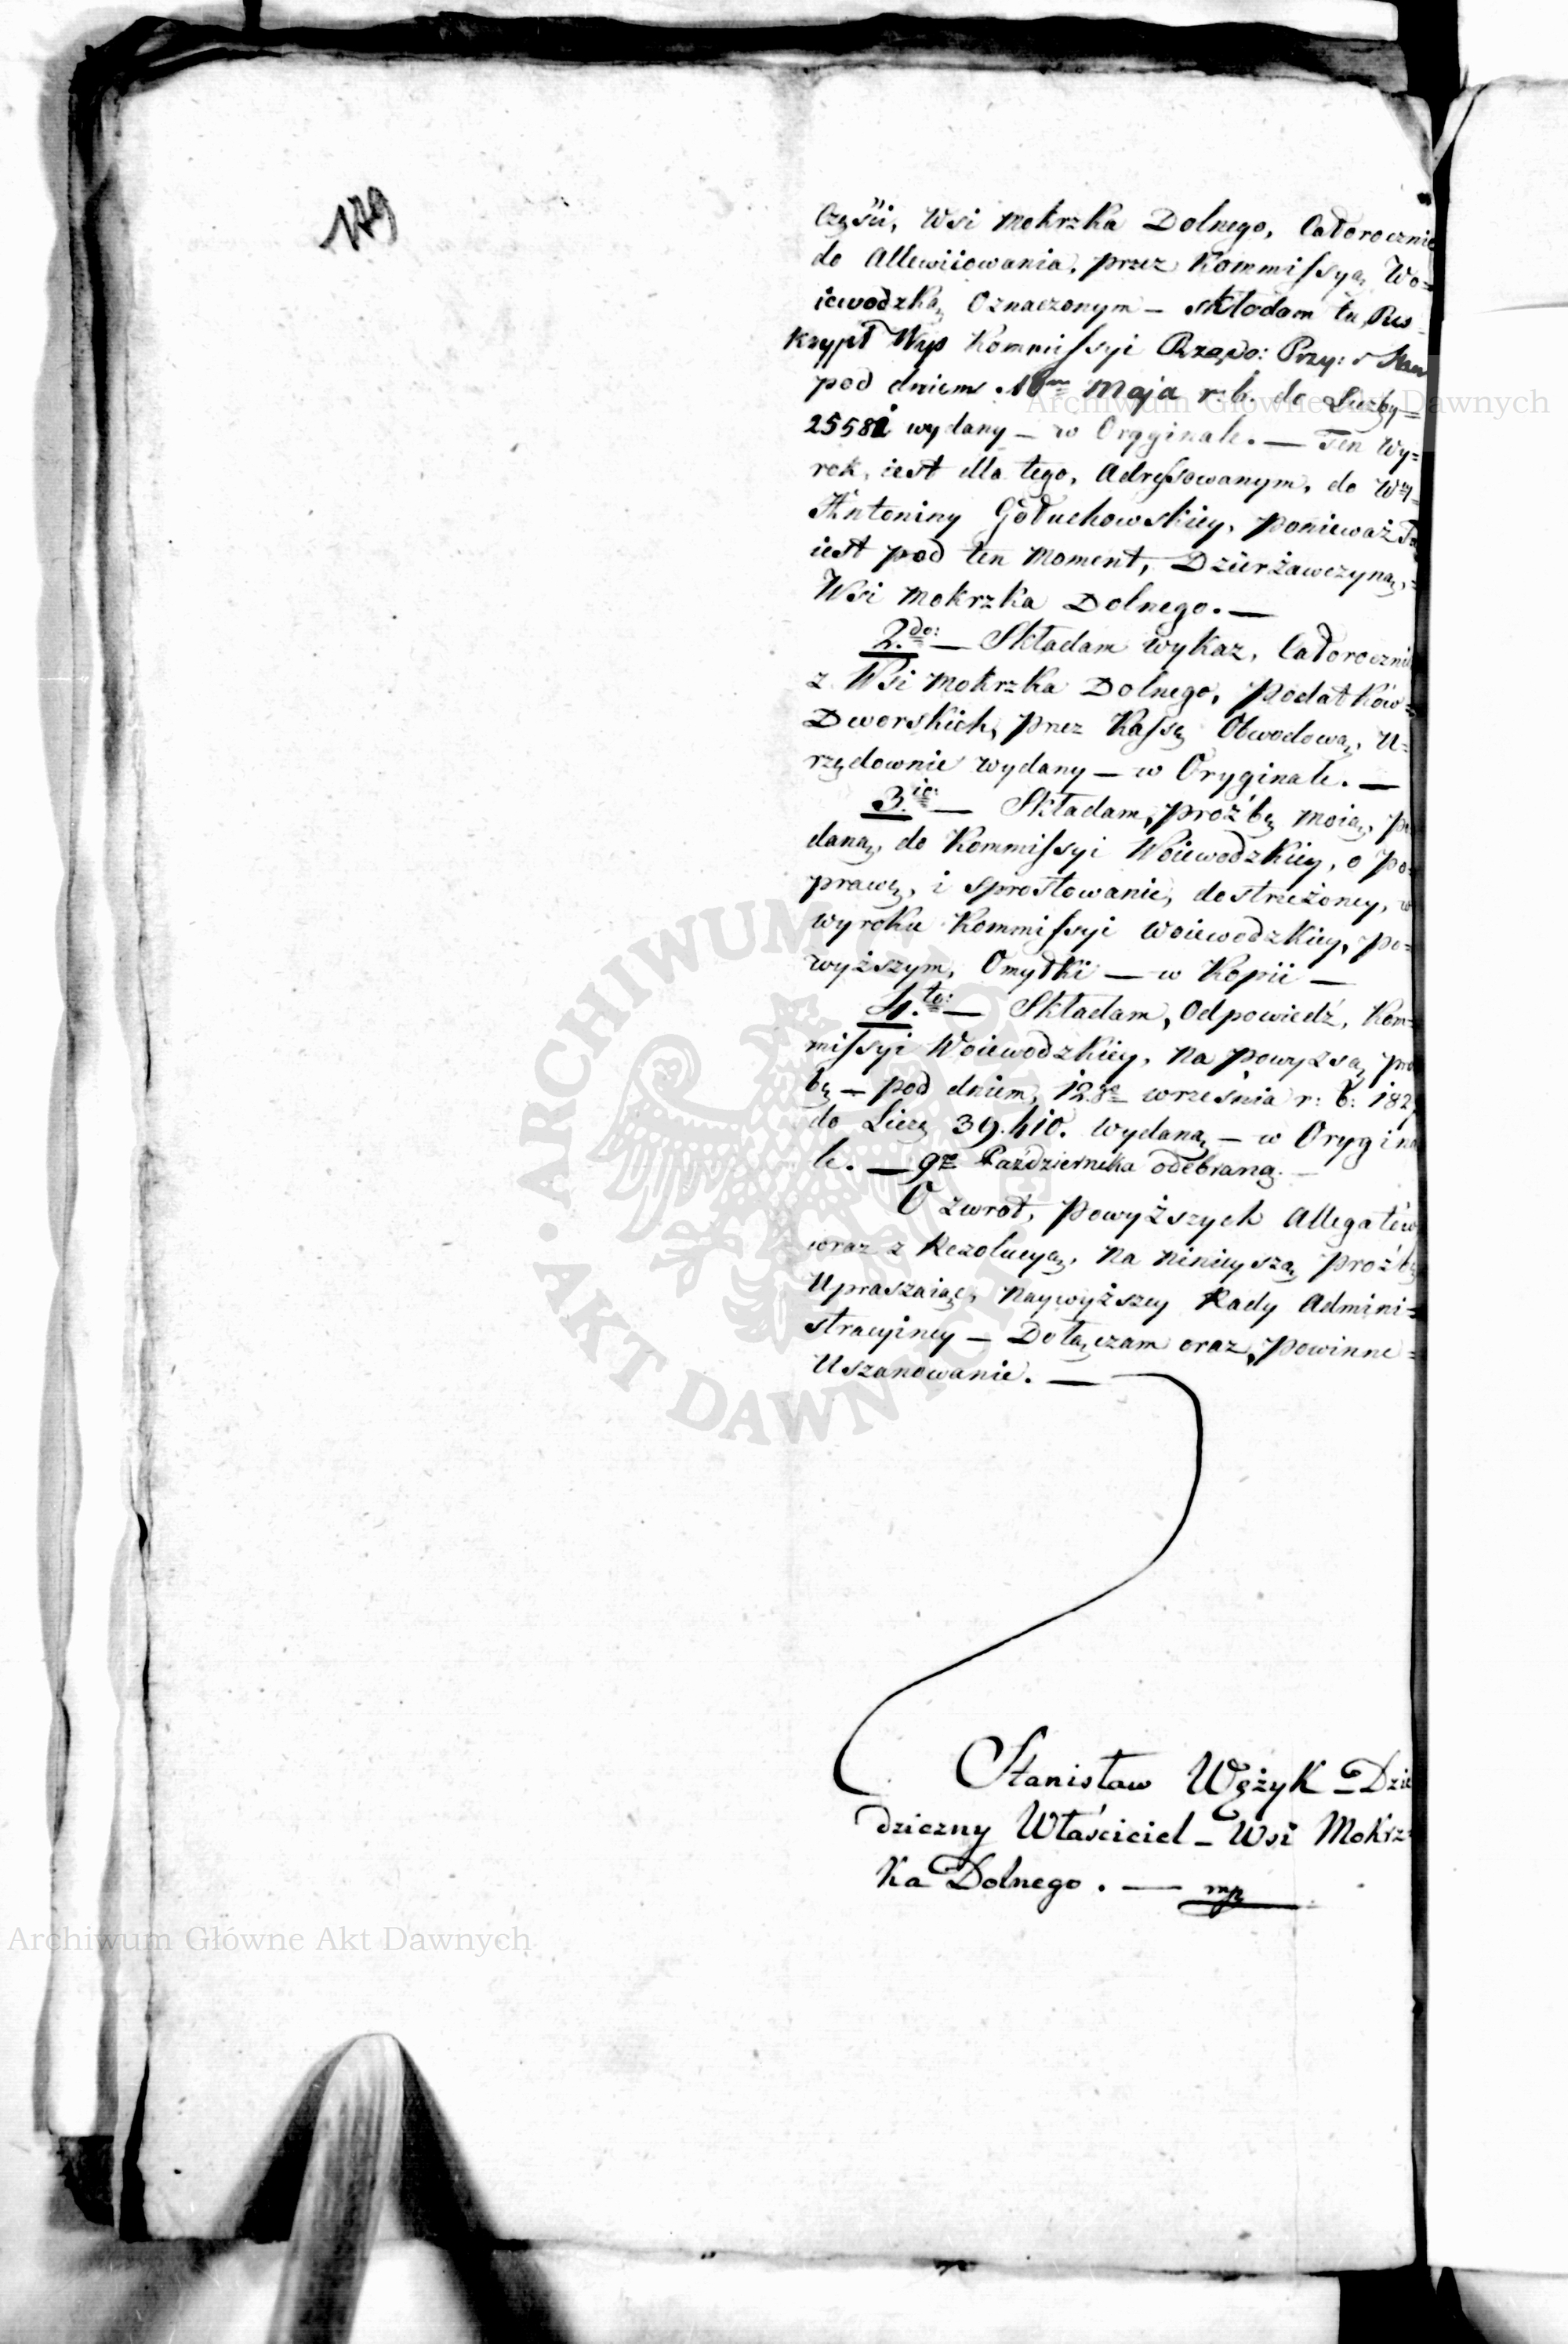 179
Części, Wsi Mokrzka Dolnego, Całorocznie
do Allewiiowania, przez Kommissyą Wo=
iewodzką Oznaczonym — składam tu, Res
krypt Wys Kommissyi Rządo: Przy: i
pod dniem 18 Maja r. b. do Liczby=
25581 wydany — w Oryginale. — Ten Wy=
rok, iest dla tego, Adressowanym, do
Antoniny Gołuchowskiey, ponieważ Ta
iest pod ten Moment, Dzierżawczyną,=
Wsi Mokrzka Dolnego. —
2.do: — Składam wykaz, Całorocznie
z Wsi Mokrzka Dolnego, Podatków=
Dworskich, przez Kassę Obwodową, U=
rzędownie wydany — w Oryginale. —
3.io: — Składam, proźbę moią, po
daną, do Kommissyi Woiewodzkiey, o Po=
prawę, i sprostowanie, dostrzeżoney, w
wyroku Kommissyi Woiewodzkiey, po=
wyższym, Omyłki — w Kopii —
4.to: — Składam, Odpowiedź, Kom=
missyi Woiewodzkiey, na powyzszą pro
bę — pod dniem, 12go września r: b: 182
do Liczę 39.410. wydaną — w Orygina
le. — 9go Października odebraną. —
O zwrot, Powyższych Allegatów
wraz z Rezolucyą, na ninieyszą Proźbę
Upraszaiąc, Naywyższey Rady Admini=
stracyiney — Dołączam oraz, powinne=
Uszanowanie. —
Stanisław Wężyk — Dzie
dziczny Właściciel — Wsi Mokrz=
ka Dolnego. — mp
Archiwum Główne Akt Dawnych
ARCHIWUM GŁÓWNE • AKT DAWNYCH •
Archiwum Główne Akt Dawnych